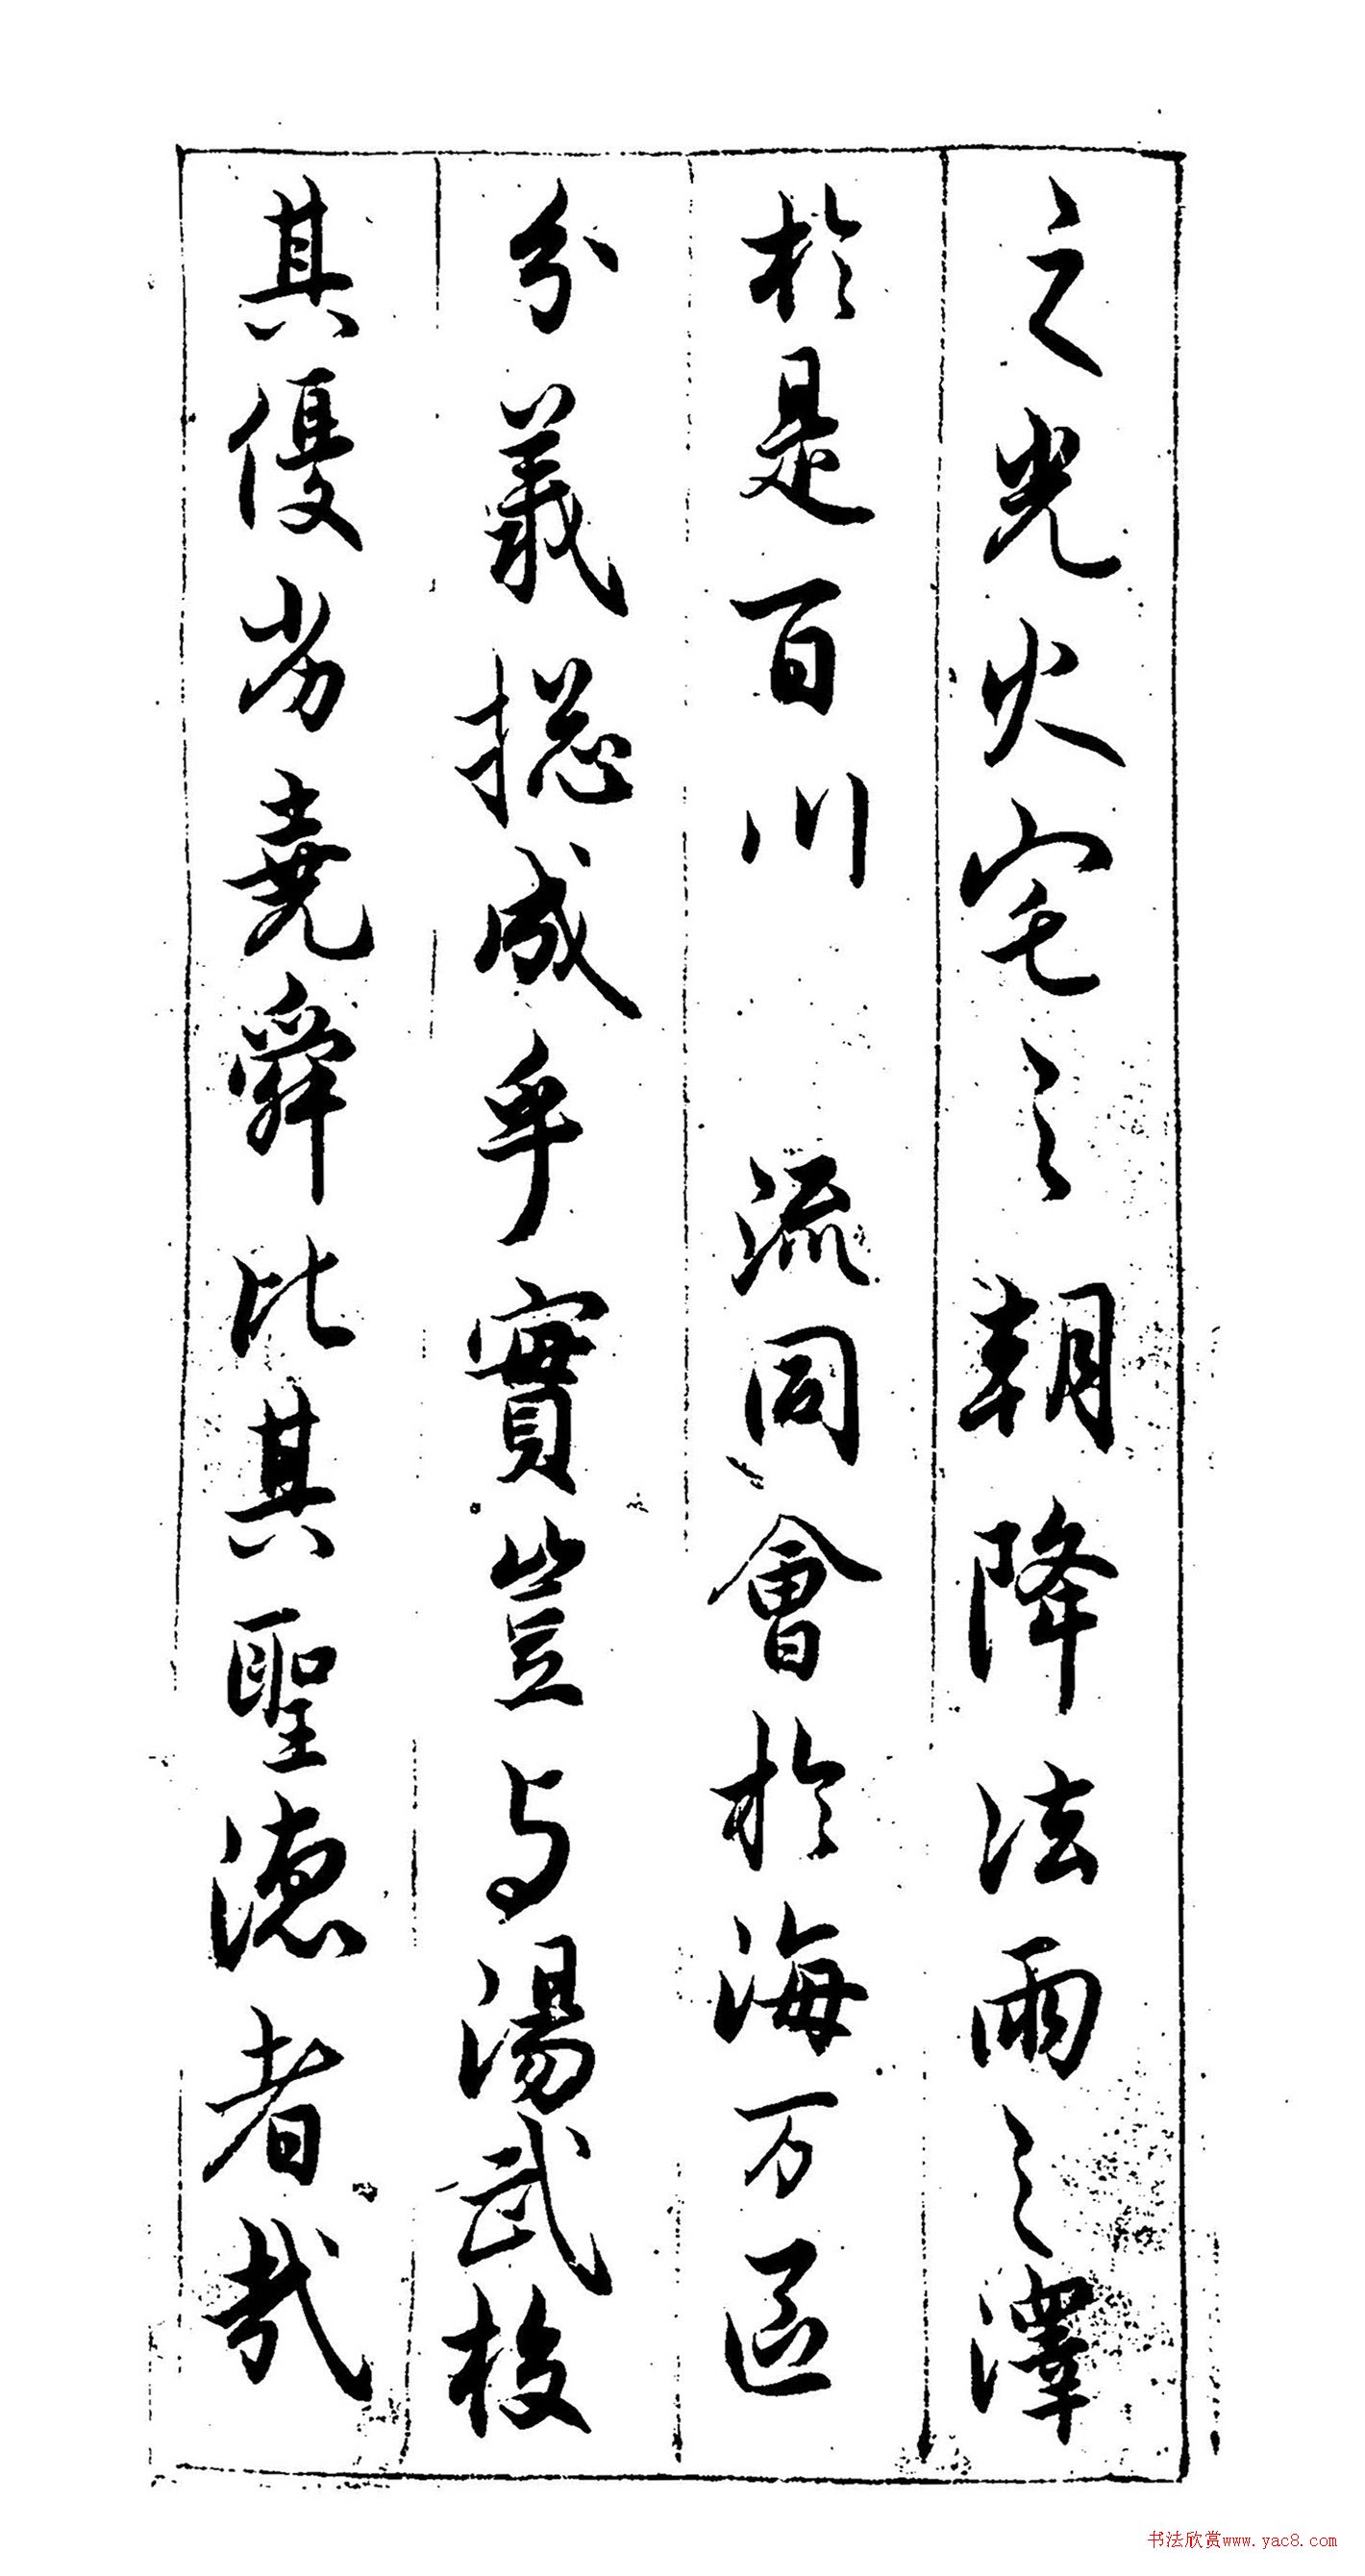 之光火宅之朝降法雨之澤
於是百川流同會於海万區
分義揔成乎實豈与湯武校
其優劣堯舜比其聖德者哉
书法欣赏www.yac8.com